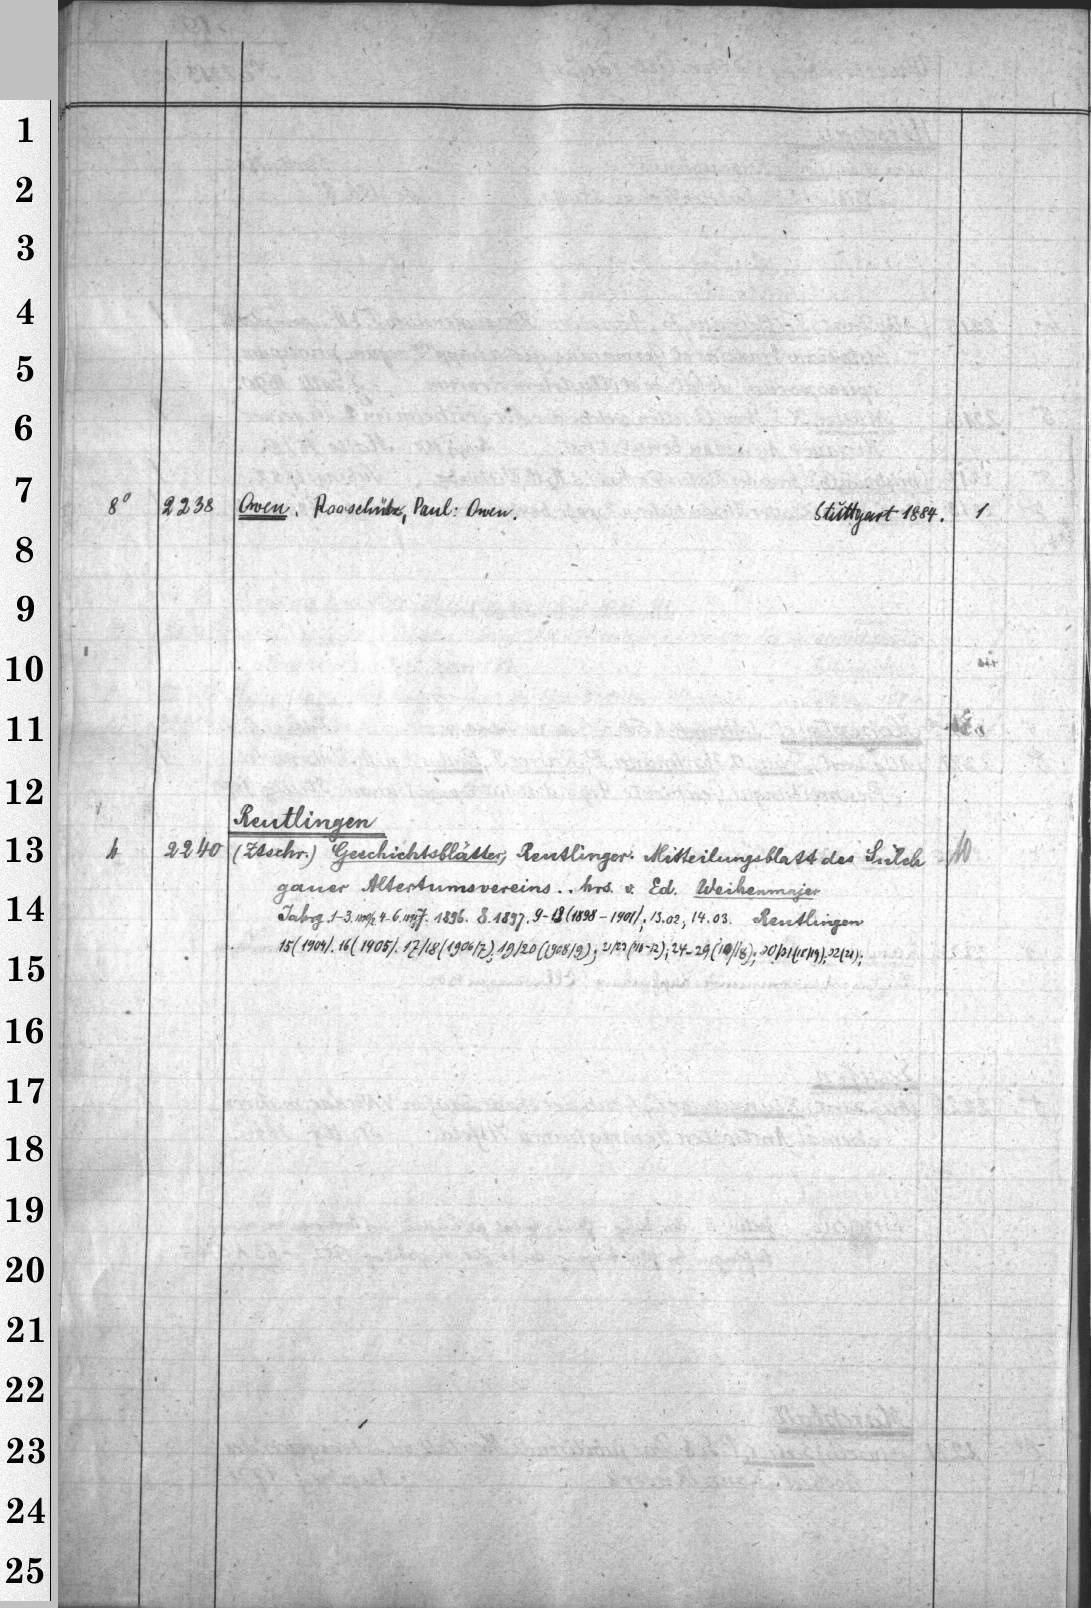 1
2
3
4
5
6
7
8° 2238 Owen. Rooschütz, Paul: Owen. Stuttgart 1884. 1
8
9
10
11
12
Reutlingen
13
4 2240 (Ztschr.) Geschichtsblätter, Reutlinger. Mitteilungsblatt des Sülch 10
gauer Altertumsvereins.. hrs. v. Ed. Weihenmajer
14
Jahrg. 1-3. 4-6. 1896. 8.1897. 9-13 (1898-1901/; 13.02, 14.03. Reutlingen
15(1904/. 16(1905/. 17/18(1906/7); 19/20(1908/9); 24-29
15
16
17
18
19
20
21
22
23
24
25